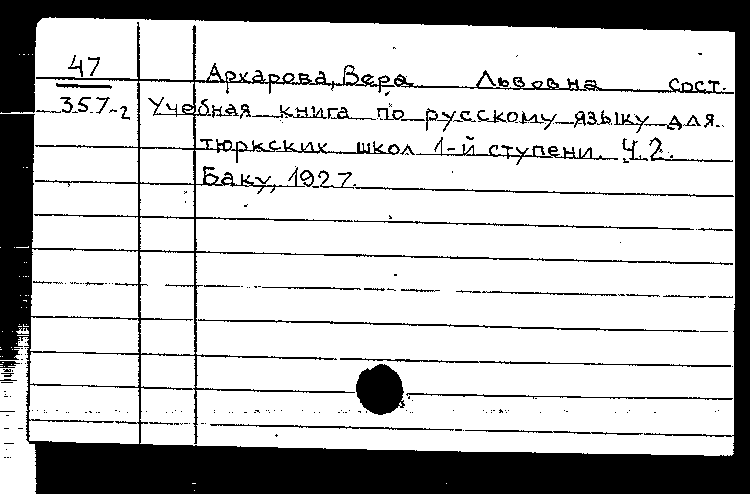 47
Архарова, Вера Львовна сост.
357-2 Учебная книга по русскому языку для
тюркских школ 1-й ступени. Ч.2.
Баку, 1927.